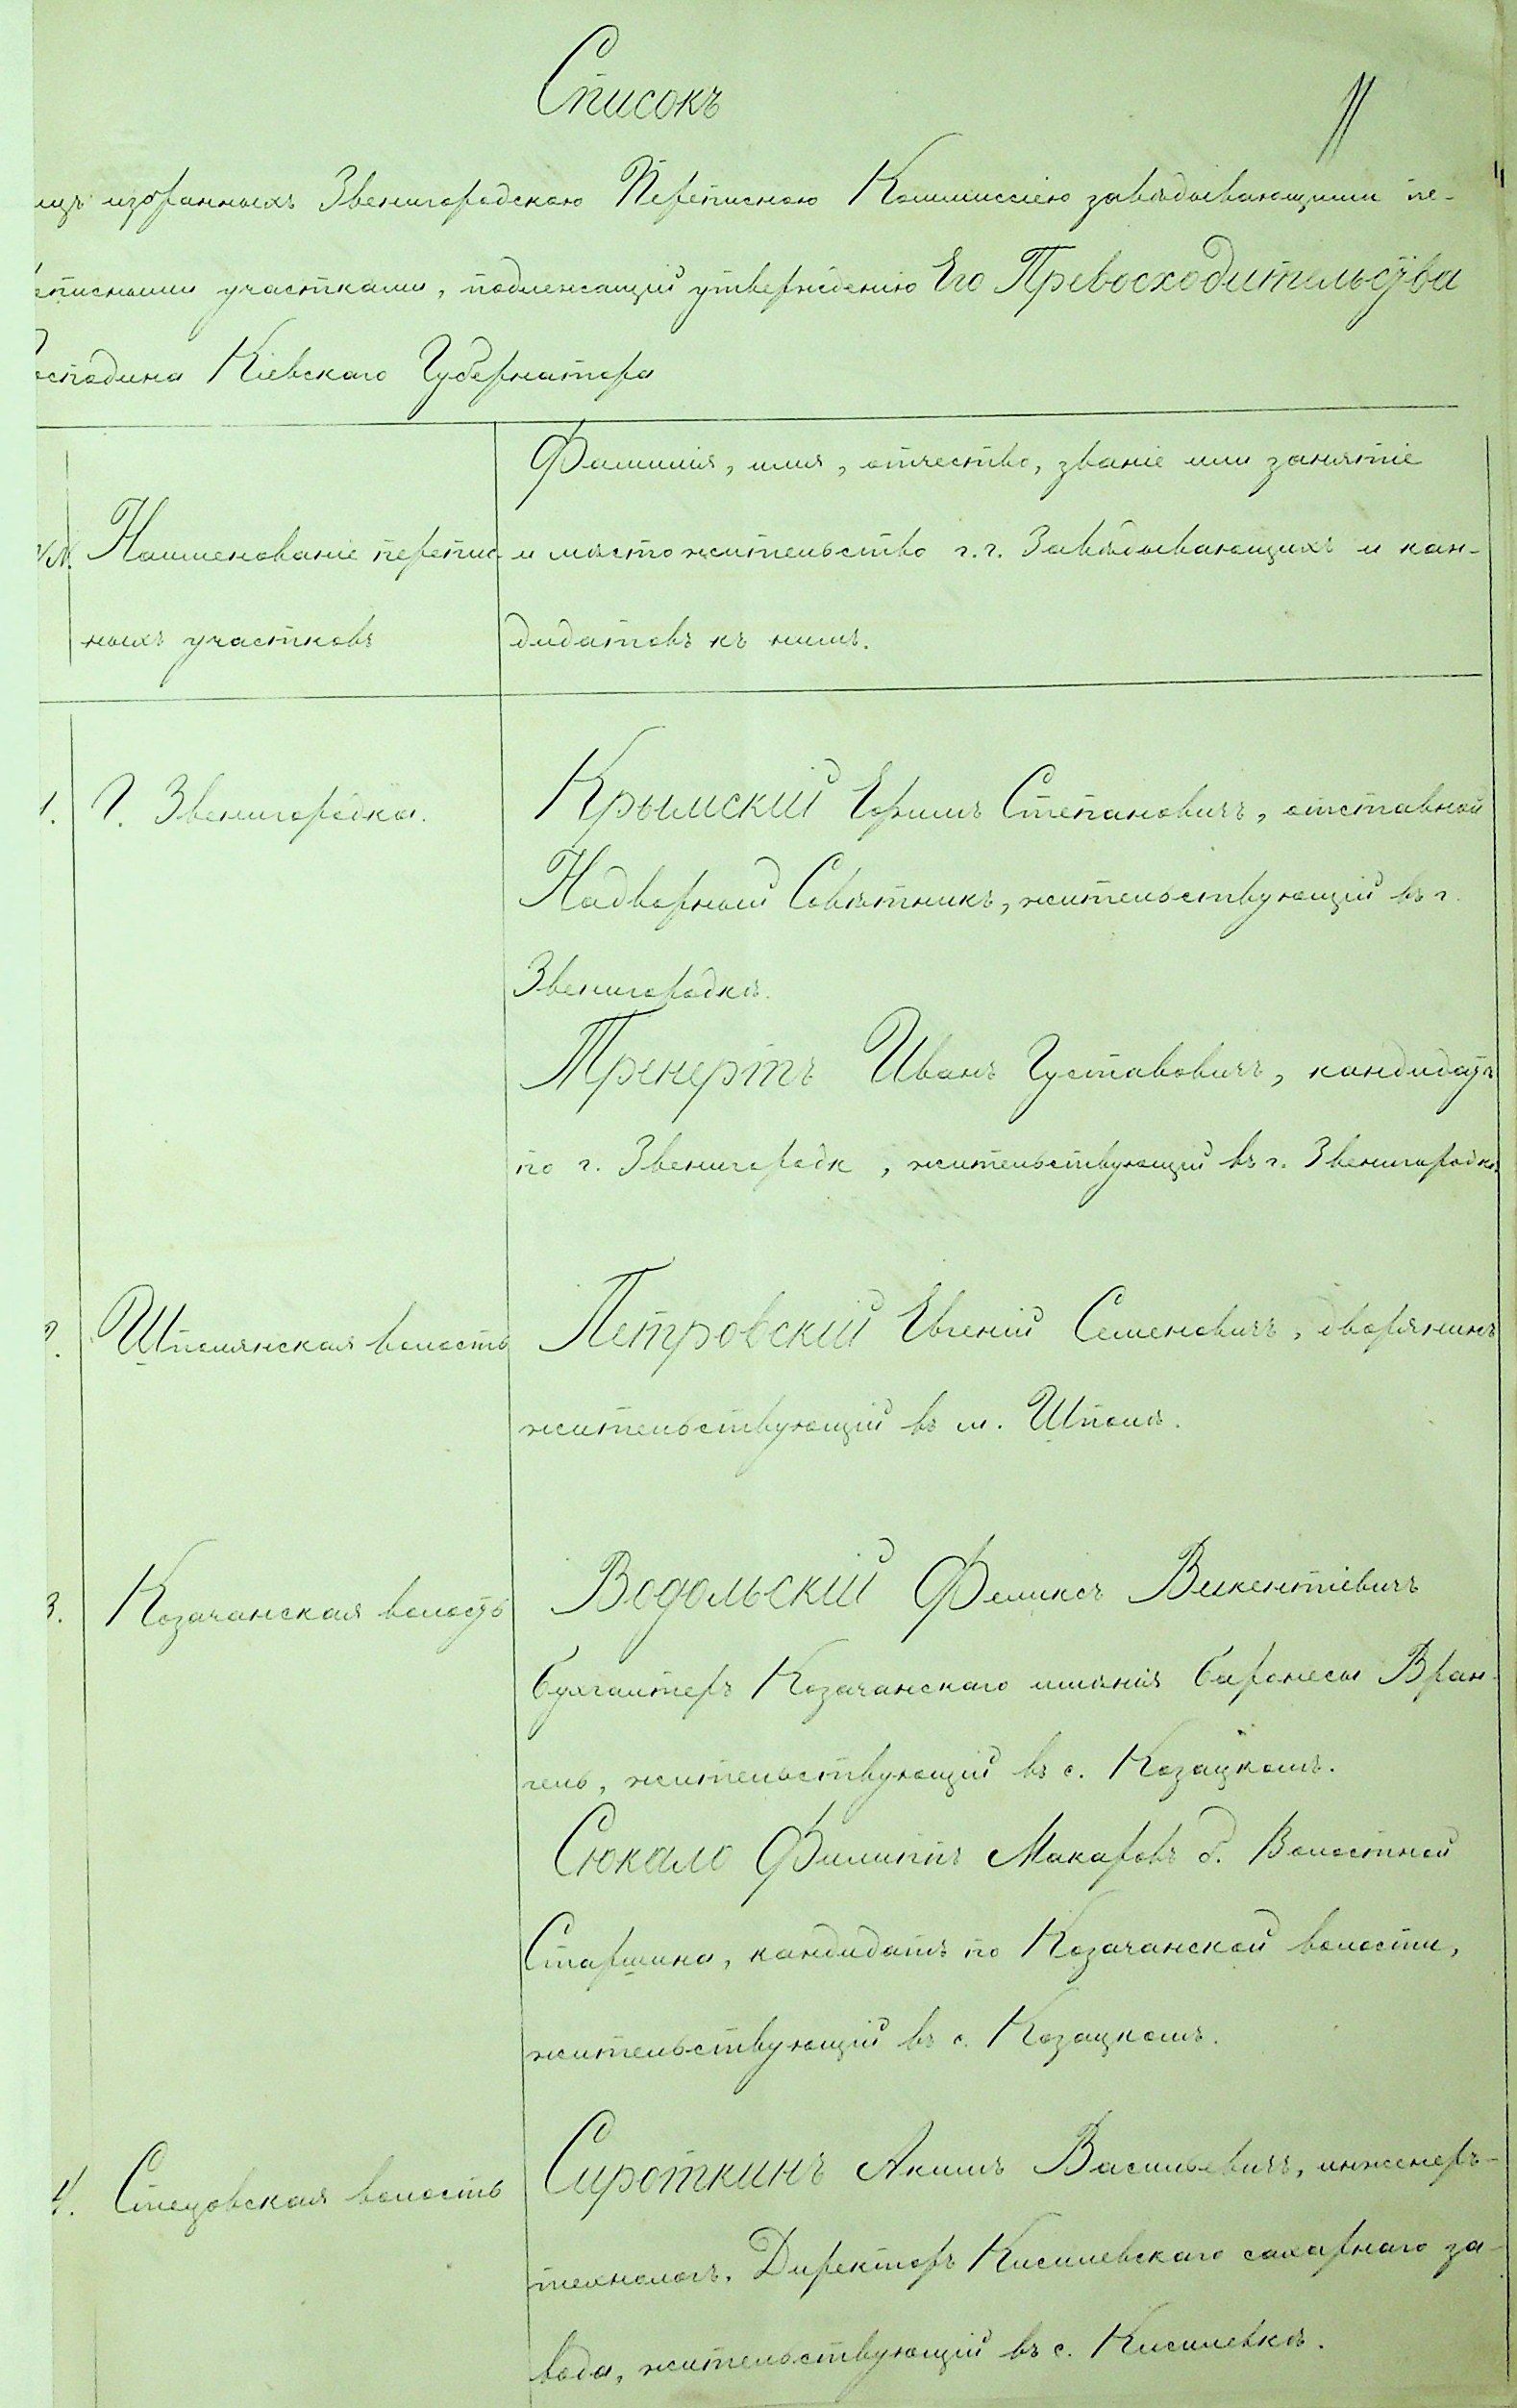 Списокъ
11
ицъ избранныхъ Звенигородскою Переписною Коммиссіею завѣдывающими пе-
еписными участками, подлежащій утвержденію Его Превосходительства
осподина Кіевскаго Губернатора
Фамилія, имя, отчество, званіе или занятіе
№ Наименованіе перепис- и мѣсто жительство г.г. Завѣдывающихъ и кан-
ныхъ участковъ дидатовъ къ нимъ.
1. Г. Звенигородка. Крымскій Ефимъ Степановичъ, отставной
Надворный Совѣтникъ, жительствующій въ г.
Звенигородкѣ.
Тренертъ Иванъ Густавовичъ, кандидатъ
по г. Звенигородк , жительствующій въ г. Звенигородкѣ.
2. Шполянская волость Петровскій Евгеній Семеновичъ, дворянинъ
жительствующій въ м. Шполѣ.
3. Козачанская волость Водольскій Феликсъ Викентіевичъ
бухгалтеръ Козачанскаго имѣнія баронесы Вран-
гель, жительствующій въ с. Козацкомъ.
Сюкало Филиппъ Макаровъ б. Волостной
Старшина, кандидатъ по Козачанской волости,
жительствующій въ с. Козацкомъ.
4. Стецовская волость Сироткинъ Акимъ Васильевичъ, инженеръ-
технологъ. Директоръ Кисилевскаго сахарнаго за-
вода, жительствующій въ с. Кисилевкѣ.